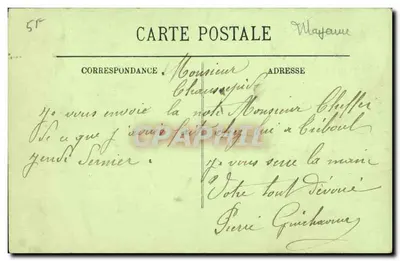 5F
Mayenne
CARTE POSTALE
CORRESPONDANCE
ADRESSE
Monsieur
je vous envoie la note Monsieur
de ce que j'avais fait chez lui a
jeudi dernier.
je vous serre la main
Votre tout dévoué
Pierre